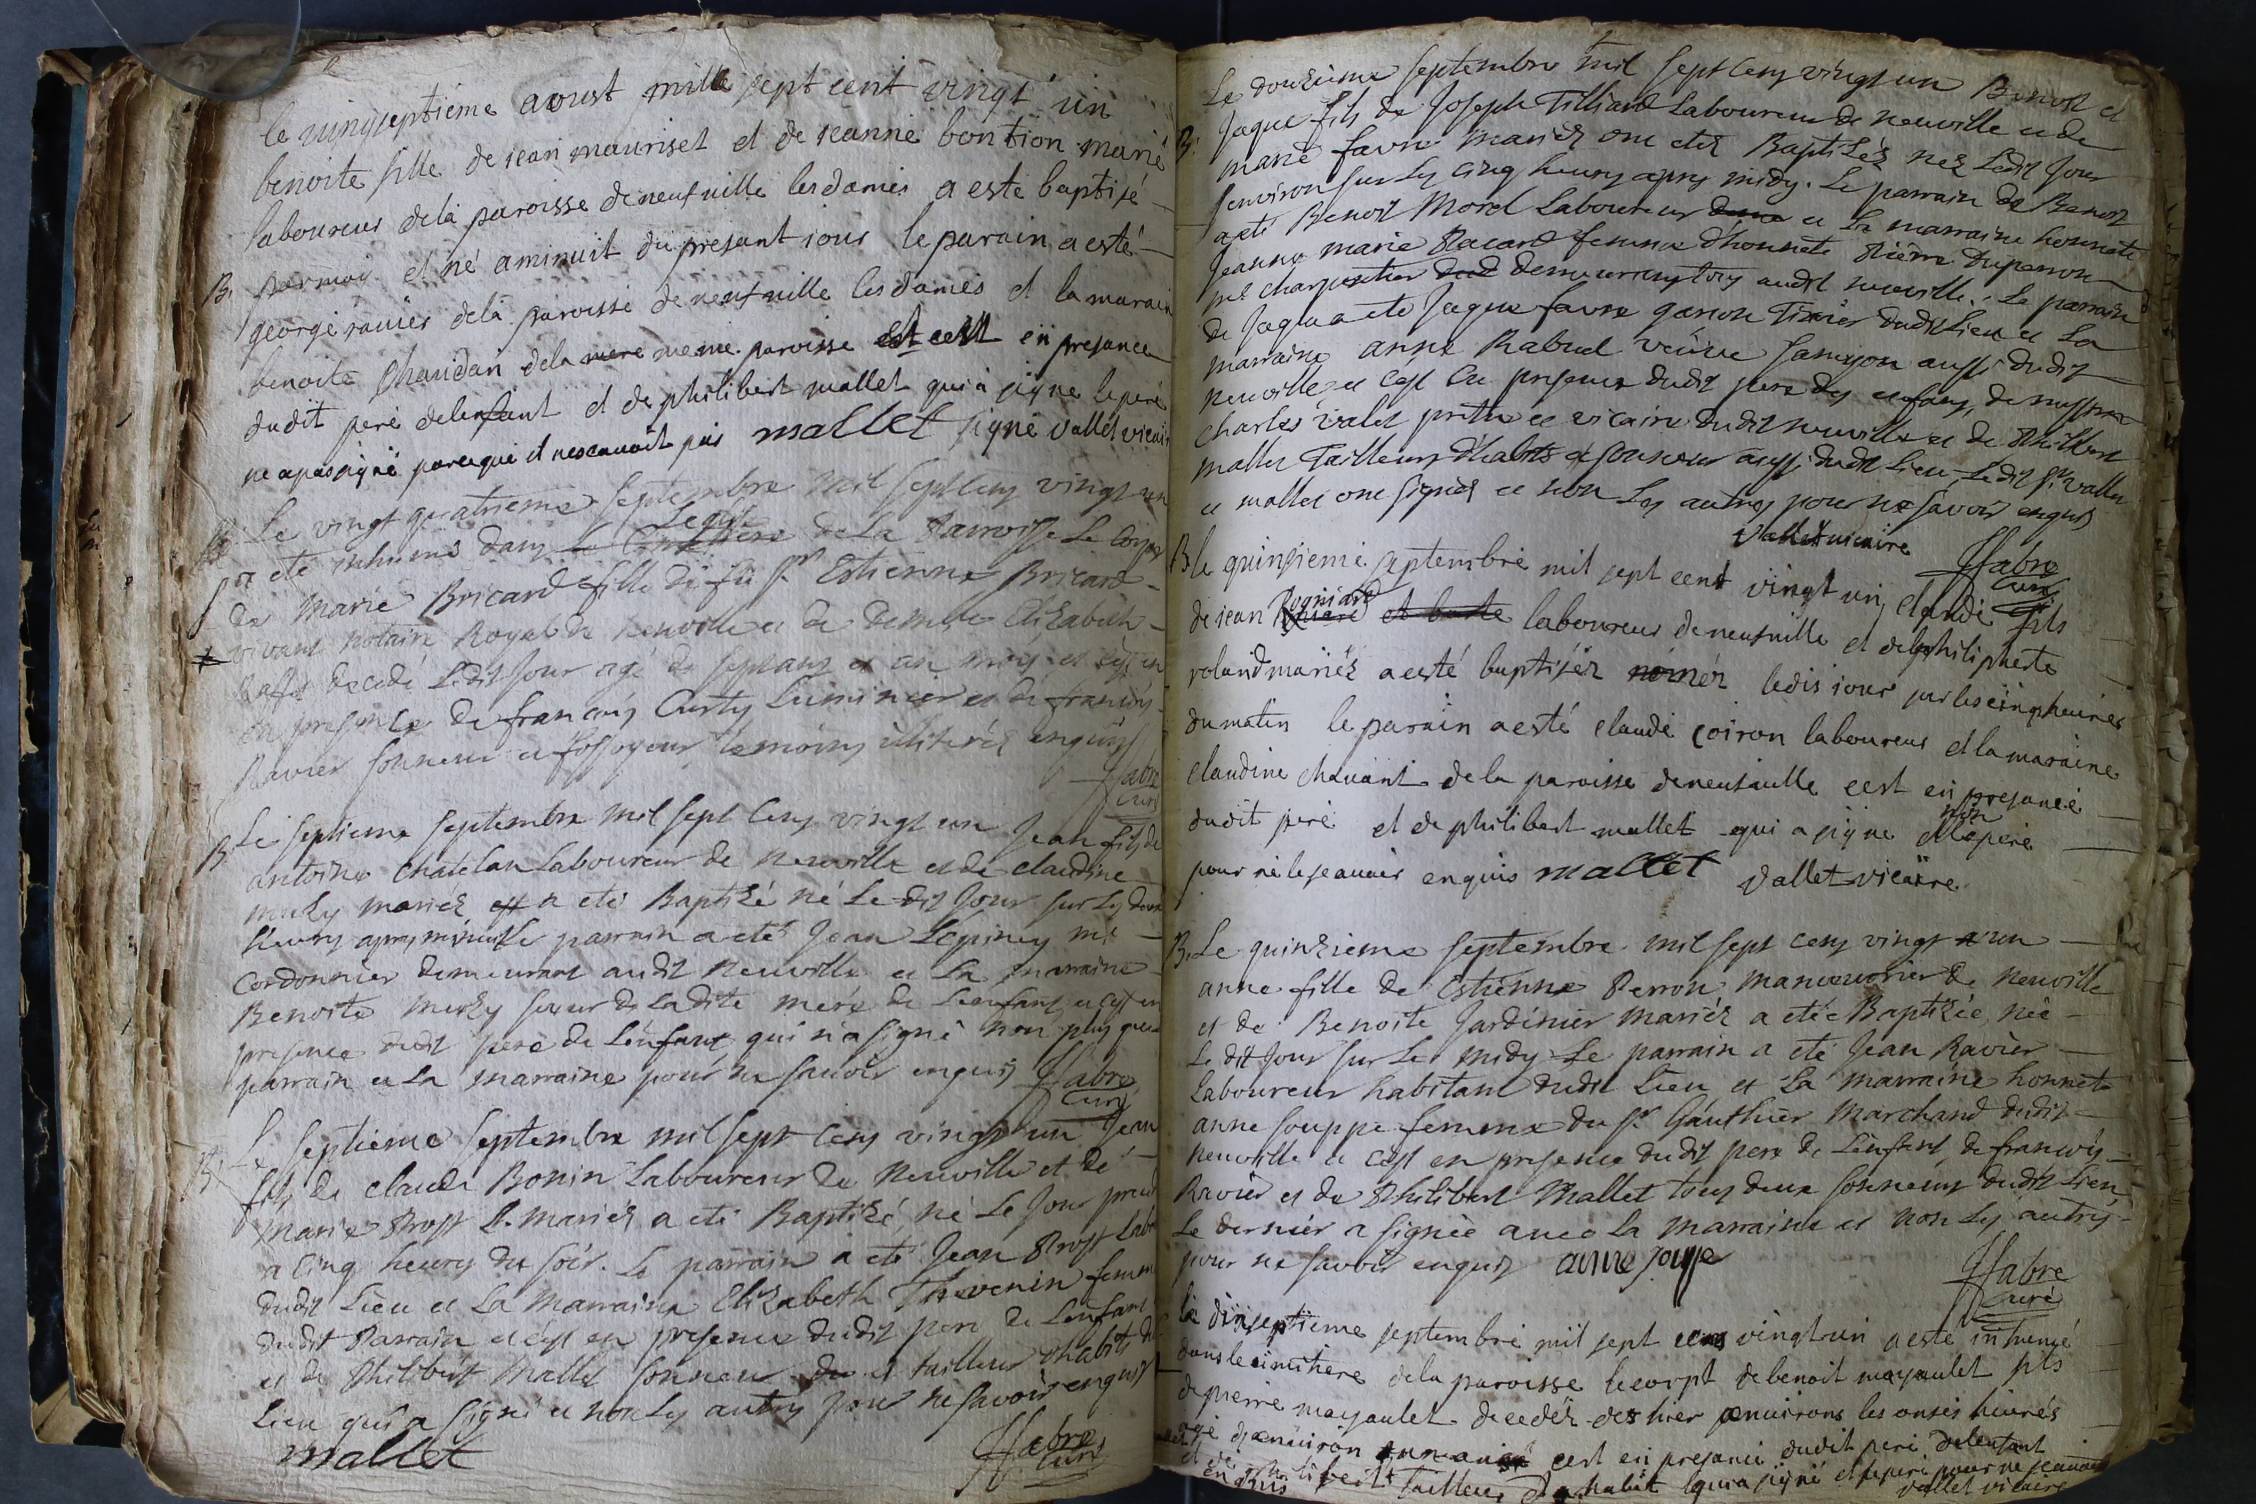 le vingseptiéme aoust mille sept cent vingt un
benoite fille de jean mauriset et de jeanne bontion marié
laboureur dela paroisse de neufuille les dames a esté baptisé
B. par moy et né aminuit du presant jour le parain a esté
george rauier dela paroisse de neufuille les dames et la marain
benoite Chaudan dela mere meme paroisse est cest en presance
dudit peré delenfant et de philibert mallet qui a signe le peré
ne a pas signé parceque il nescauoit pas mallet signé vallet vicair
Le vingt quatrieme Septembre mil sept cens vingt un
a eté inhumé dans Leglise de La Parroisse Le corps
de Marie Bricard fille de fû Sr. Estienne Bricard
vivant notaire Royal de neuville et de demlle Elizabeth
decedé Ledit Jour agé de sept ans et un mois et c'est en
en presence de françois Curty Luminier et de françois
Ravier sonneur et fossoyeur temoins illiterés enquis
ffabre
curé
B. Le septieme septembre mil sept cens vingt un Jean fils de
antoine chatelan Laboureur de neuville et de claudine
mariéz est a eté Baptizé né Le dit Jour sur Les deux
heures apres minuit Le parrain a eté Jean Lépiney me
Cordonnier demeurant audit neuville et La marraine
Benoite soeur de Ladite mere de L'enfant et c'est en
presence dudit pere de L'enfant qui n'a signé non plus que
parrain et La marraine pour ne savoir enquis ffabre
curé
B. Le septieme septembre mil sept cens vingt un Jean
fils de claude Bonin Laboureur de neuville et de
Marie Prost mariéz a eté Baptizé, né Le Jour
a Cinq heures du soir. Le parrain a eté Jean Prost Lab
dudit Lieu et La Marraine Elizabeth Thevenin femme
dudit Parrain et c'est en presence dudit pere de L'enfant
et de Philibert Mallet sonneur du et tailleur d'habits du
Lieu qui a signé et non Les autres pour ne savoir enquis
mallet ffabre
curé
Le douzieme septembre mil sept cens vingt un Benoit et
B. Jaque fils de Joseph Tilliard Laboureur de neuville et de
marie favre mariéz ont etéz Baptizéz nez Ledit Jour
environ sur Les cinq heures apres midy. Le parrain de Benoit
a eté Benoit Morel Laboureur et La marraine honnete
Jeanne marie Pacard femme d'honnete Pierre Duperron
me charpentier demeurrants tous audit neuville. Le parrain
de Jaque a eté Jaque favre garson Tixier dudit Lieu et La
marraine anne Rabuel veuve aussi dudit
neuville et c'est En presence dudit pere des enfans, de messire
Charles valet prêtre et vicaire dudit neuville et de Philibert
mallet Tailleur d'habits et sonneur aussi dudit Lieu, Ledit Sr. vallet
et mallet ont signés et non Les autres pour ne savoir enquis
Vallet uicaire ffabre
curé
B. le quinsiemé septembré mil sept cent vingt un, claudé fils
de jean Rogniard et laboureur de neufuille et de philiperte
roland mariéz a esté baptiséz nómér ledis jour sur les cinq heures
du matin le parain a esté claudé coiron laboureur et la maraine
claudine chauant de la paroisse de neufuille cest en presancé
dudit peré et de philibert mallet qui a signe non le peré
pour ne le scauoir enquis mallet vallet vicaire
B. Le quinzieme septembre mil sept cens vingt un
anne fille de Estienne Perron manoeuvrier de neuville
et de Benoite Jardinier mariéz a etée Baptizée, née
Le dit Jour sur Le midy Le parrain a eté Jean Ravier
Laboureur habitant dudit Lieu et La marraine honnete
anne souppe femme du Sr. Gauthier Marchand dudit
neuville et c'est en presence dudit pere de L'enfant, de françois
Ravier et de Philibert Mallet tous deux sonneurs dudit Lieu,
Le dernier a signée avec La marraine et non Les autres
pour ne savoir enquis anne souppe
ffabre
curé
Le dixseptieme septembré mil sept cens vingt un a esté inhumé
dans le cimitiere dela paroisse le corpt de benoit mayoulet fils
de pierre mayoulet decedéz des hier enuirons les onses heurés
agé d'enuiron cest en presancé dudit peré delenfant
et de philibert tailleur d'habit qui a signé et le peré pour ne scauoir
enquis vallet vicaire